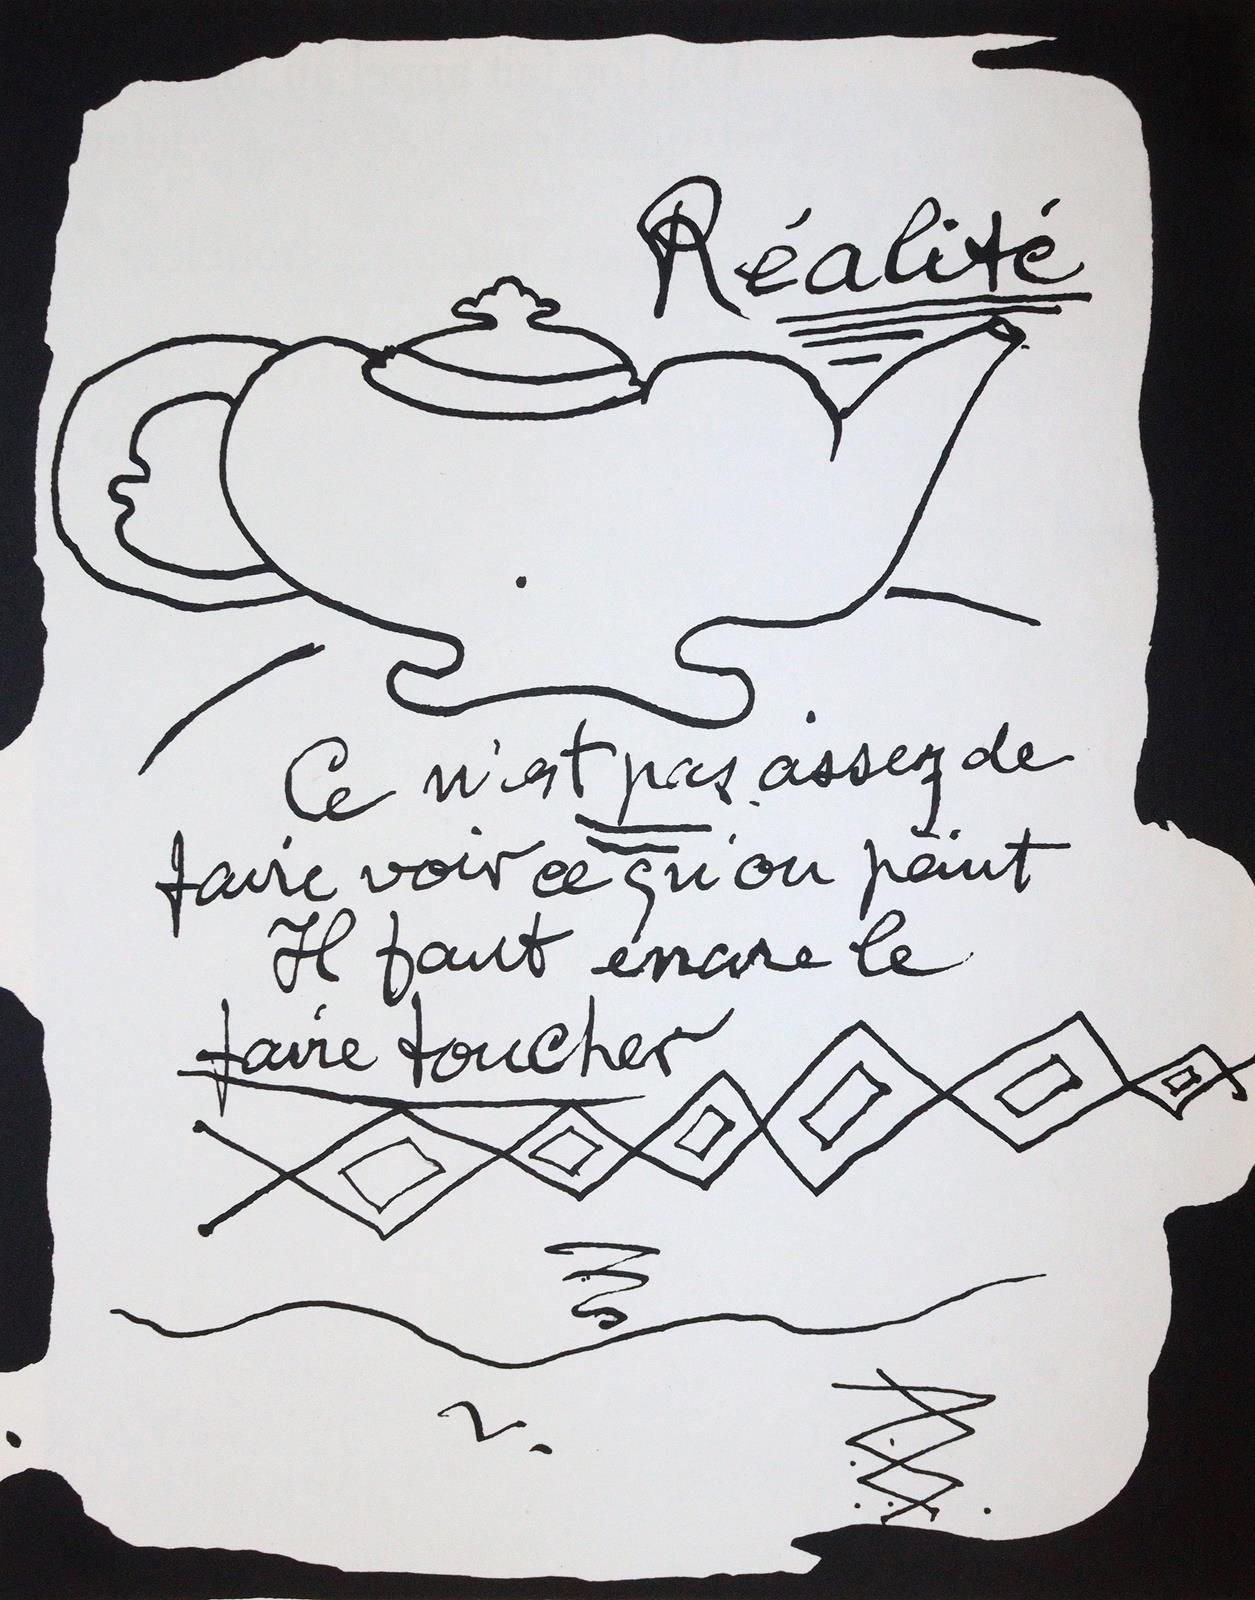 Réalité
Ce n'est pas assez de
faire voir ce qu'on peint
Il faut encore le
faire toucher